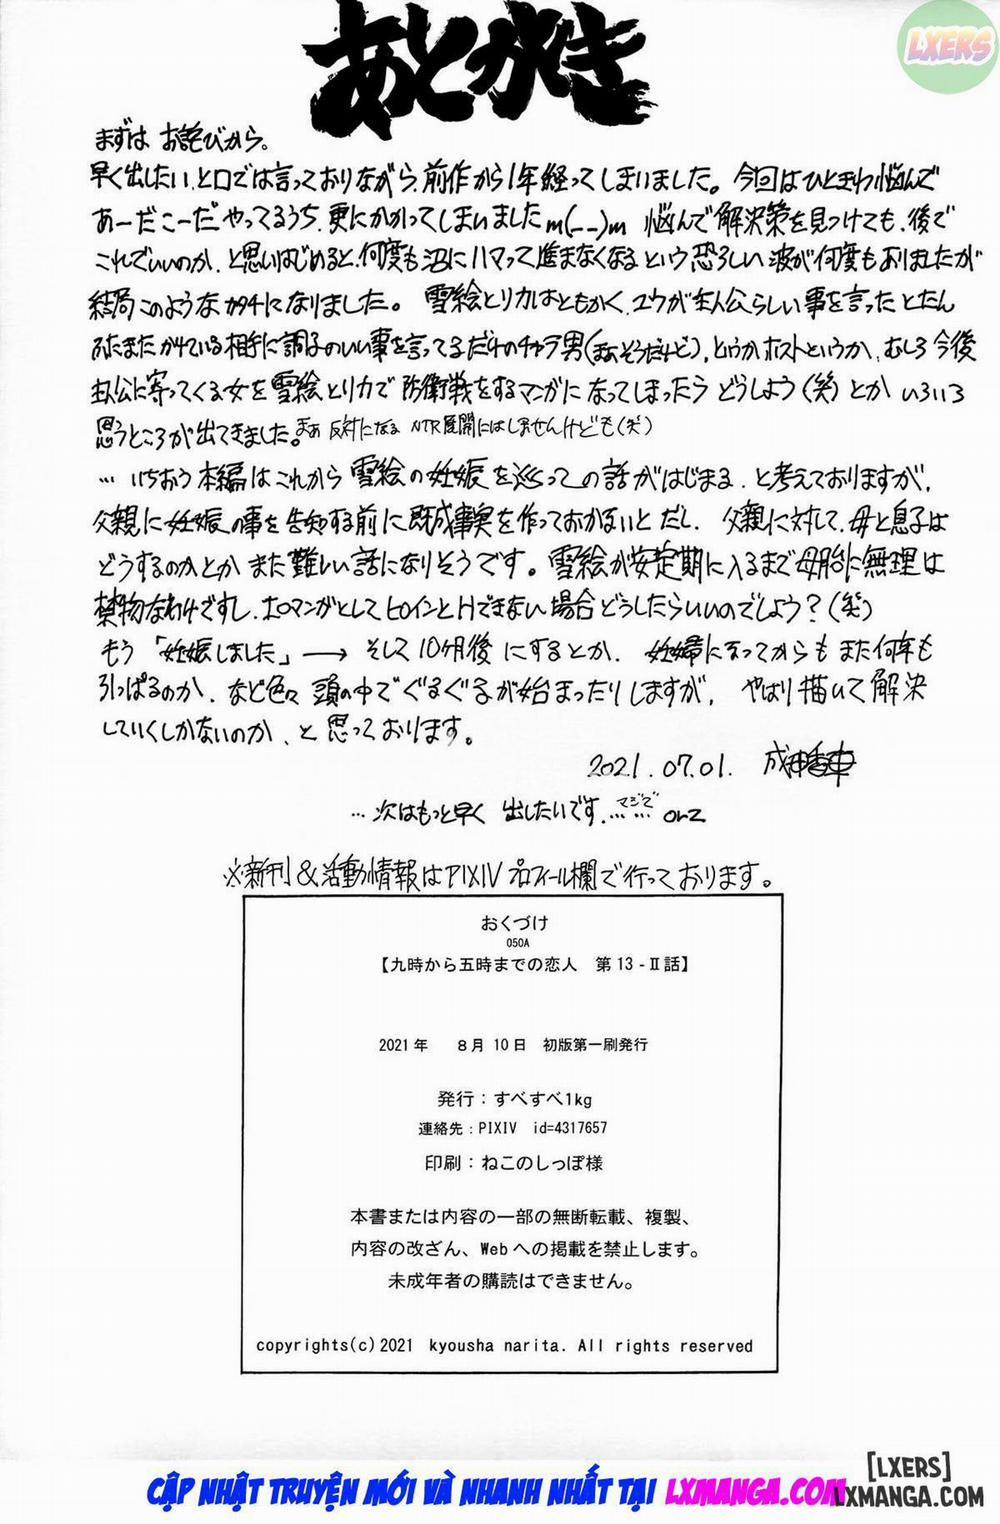 LXERS
あとがき
まずは お詫びから。
早く出したい、と口では言っておりながら、前作から1年経ってしまいました。今回はひときわ悩んで
あーだこーだやってるうち、更にかかってしまいましたm(--)m 悩んで解決策を見つけても、後で
これでいいのか、と思いはじめると、何度も沼にハマって進まなくなるという恐ろしい波が何度もありましたが
結局このようなカタチになりました。 雪絵とリカはともかく、ユウが主人公らしい事を言ったとたん
ふたまたかけている相手に調子のいい事を言ってるだけのチャラ男(まあそうだけど)、というかホストというか、むしろ今後
主人公に寄ってくる女を雪絵とリカで防衛戦をするマンガになってしまったらどうしよう(笑)とか いろいろ
思うところが出てきました。まあ 反対になる NTR展開にはしませんけども(笑)
… いちおう本編はこれから雪絵の妊娠を巡っての話がはじまる、と考えておりますが、
父親に妊娠の事を告知する前に既成事実を作っておかないとだし、父親に対して、母と息子は
どうするのかとか また難しい話になりそうです。雪絵が安定期に入るまで母胎に無理は
禁物なわけですし、エロマンガとしてヒロインとHできない場合どうしたらいいのでしょう?(笑)
もう「妊娠しました」→ そして10ヶ月後 にするとか、妊婦になってからもまた何年も
引っぱるのか、など色々 頭の中でぐるぐるが始まったりしますが、やはり描いて解決
していくしかないのか、と思っております。
2021.07.01. 成田香車
… 次はもっと早く 出したいです。マジで orz
※新刊&活動情報はPIXIVプロフィール欄で行っております。
おくづけ
050A
【九時から五時までの恋人 第13-Ⅱ話】
2021年 8月10日 初版第一刷発行
発行:すべすべ1kg
連絡先:PIXIV id=4317657
印刷:ねこのしっぽ様
本書または内容の一部の無断転載、複製、
内容の改ざん、Webへの掲載を禁止します。
未成年者の購読はできません。
copyrights(c)2021 kyousha narita. All rights reserved
[LXERS]
CẬP NHẬT TRUYỆN MỚI VÀ NHANH NHẤT TẠI LXMANGA.COM
LXMANGA.COM